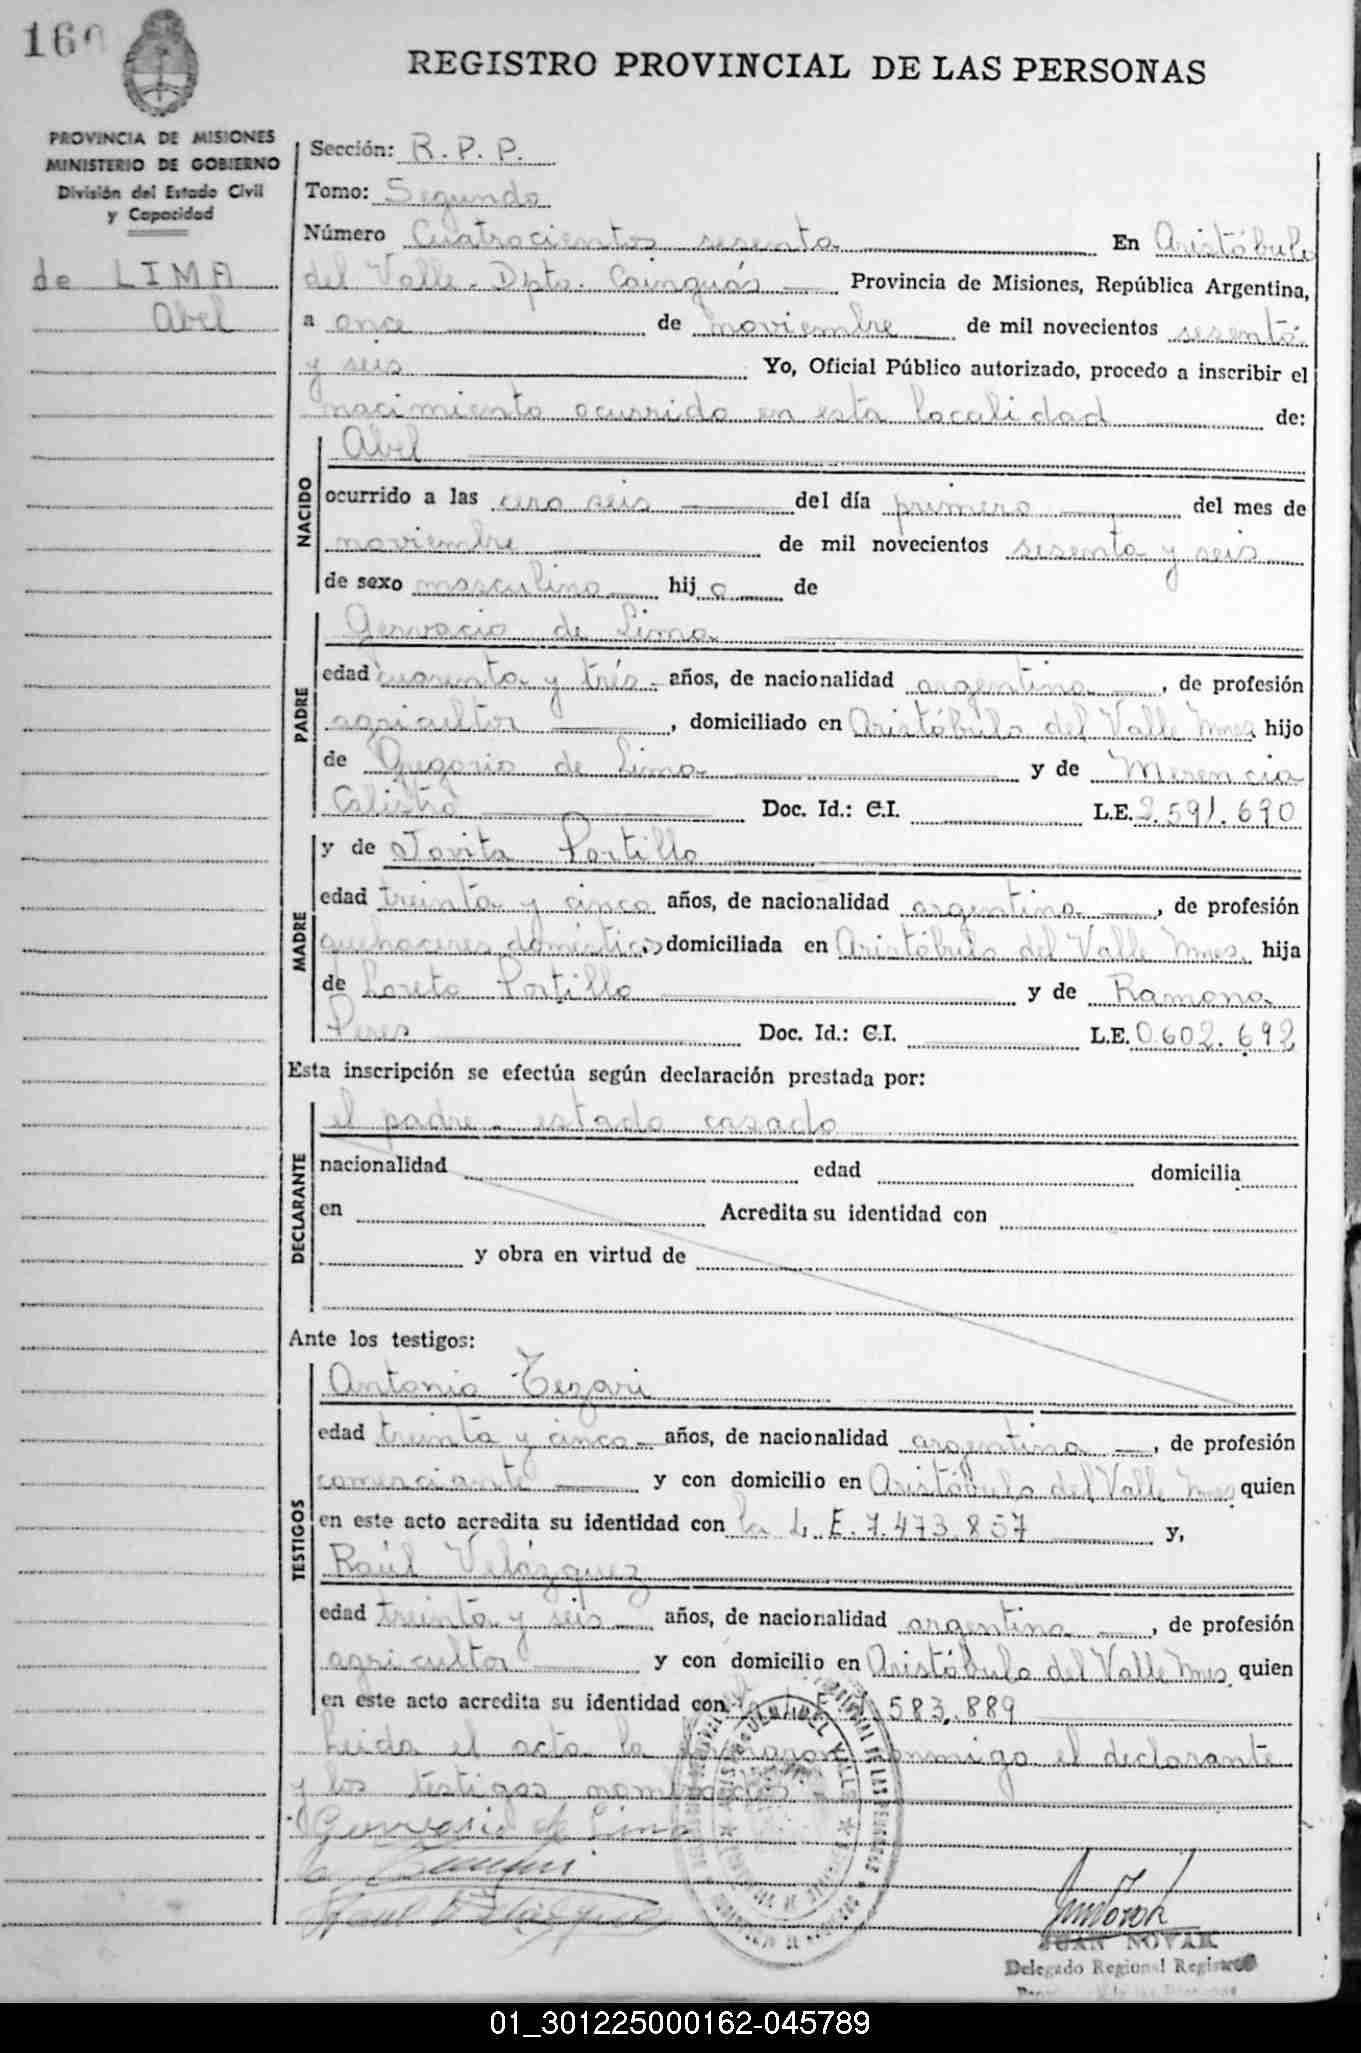 160
REGISTRO PROVINCIAL DE LAS PERSONAS
PROVINCIA DE MISIONES
MINISTERIO DE GOBIERNO
División del Estado Civil
y Capacidad
de LIMA
Abel
Sección: R. P. P.
Tomo: Segundo
Número Cuatrocientos sesenta En Aristóbulo
del Valle. Dpto. Cainguás Provincia de Misiones, República Argentina,
a once de noviembre de mil novecientos sesenta
y seis Yo, Oficial Público autorizado, procedo a inscribir el
nacimiento ocurrido en esta localidad de:
NACIDO
Abel
ocurrido a las cero seis del día primero del mes de
noviembre de mil novecientos sesenta y seis
de sexo masculino hijo de
PADRE
Gervacio de Lima
edad cuarenta y trés años, de nacionalidad argentina, de profesión
agricultor, domiciliado en Aristóbulo del Valle Mnes hijo
de Gregorio de Lima y de Merencia
Calistro Doc. Id.: C.I. L.E. 2.591.690
MADRE
y de Jovita Portillo
edad treinta y cinco años, de nacionalidad argentina, de profesión
quehaceres domésticos, domiciliada en Aristóbulo del Valle Mnes. hija
de Loreto Portillo y de Ramona
Peres Doc. Id.: C.I. L.E. 0.602.692
Esta inscripción se efectúa según declaración prestada por:
DECLARANTE
el padre. estado casado
nacionalidad edad domicilia
en Acredita su identidad con
y obra en virtud de
Ante los testigos:
TESTIGOS
Antonio Tezari
edad treinta y cinco años, de nacionalidad argentina, de profesión
comerciante y con domicilio en Aristóbulo del Valle Mnes quien
en este acto acredita su identidad con la L.E. 7.473.857 y,
Raúl Velázquez
edad treinta y seis años, de nacionalidad argentina, de profesión
agricultor y con domicilio en Aristóbulo del Valle Mnes. quien
en este acto acredita su identidad con la L.E. 583.889
Leida el acta la firmaron conmigo el declarante
y los testigos nombrados
Gervasio de Lima
JUAN NOVAK
Delegado Regional Registro
01_301225000162-045789